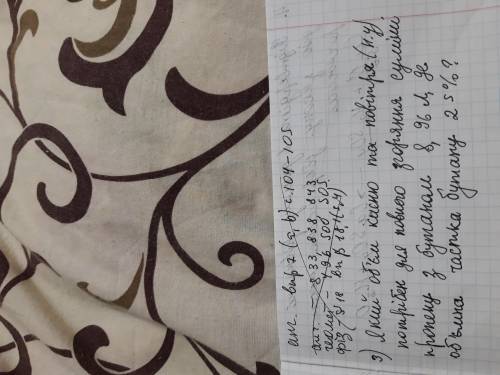 анг. впр 2 (а, b) с. 104-105
алг. - 833 838 843
геомет - 496 500 503
фіз / 18 впр 18.1(1,4)
3) Який об'єм кисню та повітря (н.у)
потрібен для повного згоряння суміші
пропену з бутаном 8,96 л, де
об'ємна частка бутану 25%?